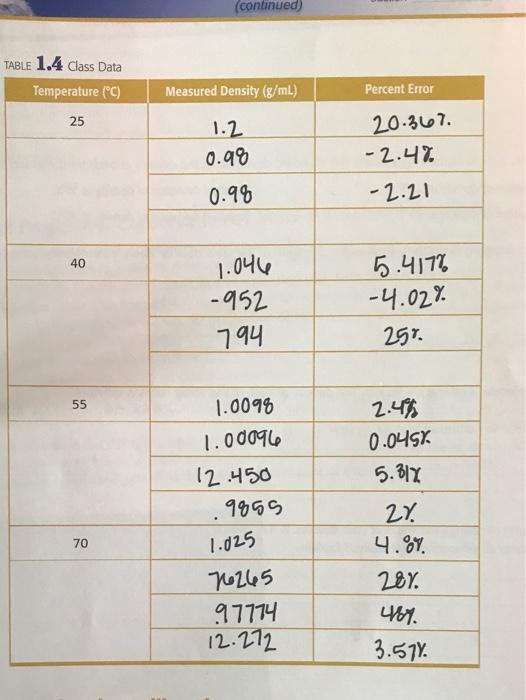 (continued)
TABLE 1.4 Class Data
Temperature (°C) Measured Density (g/mL) Percent Error
25 1.2 20.36%
0.98 -2.4%
0.98 -2.21
40 1.046 5.417%
-952 -4.02%
794 25%
55 1.0098 2.4%
1.00096 0.045%
12.450 5.31%
.9855 2%
70 1.025 4.8%
76265 28%
.97774 48%
12.272 3.57%